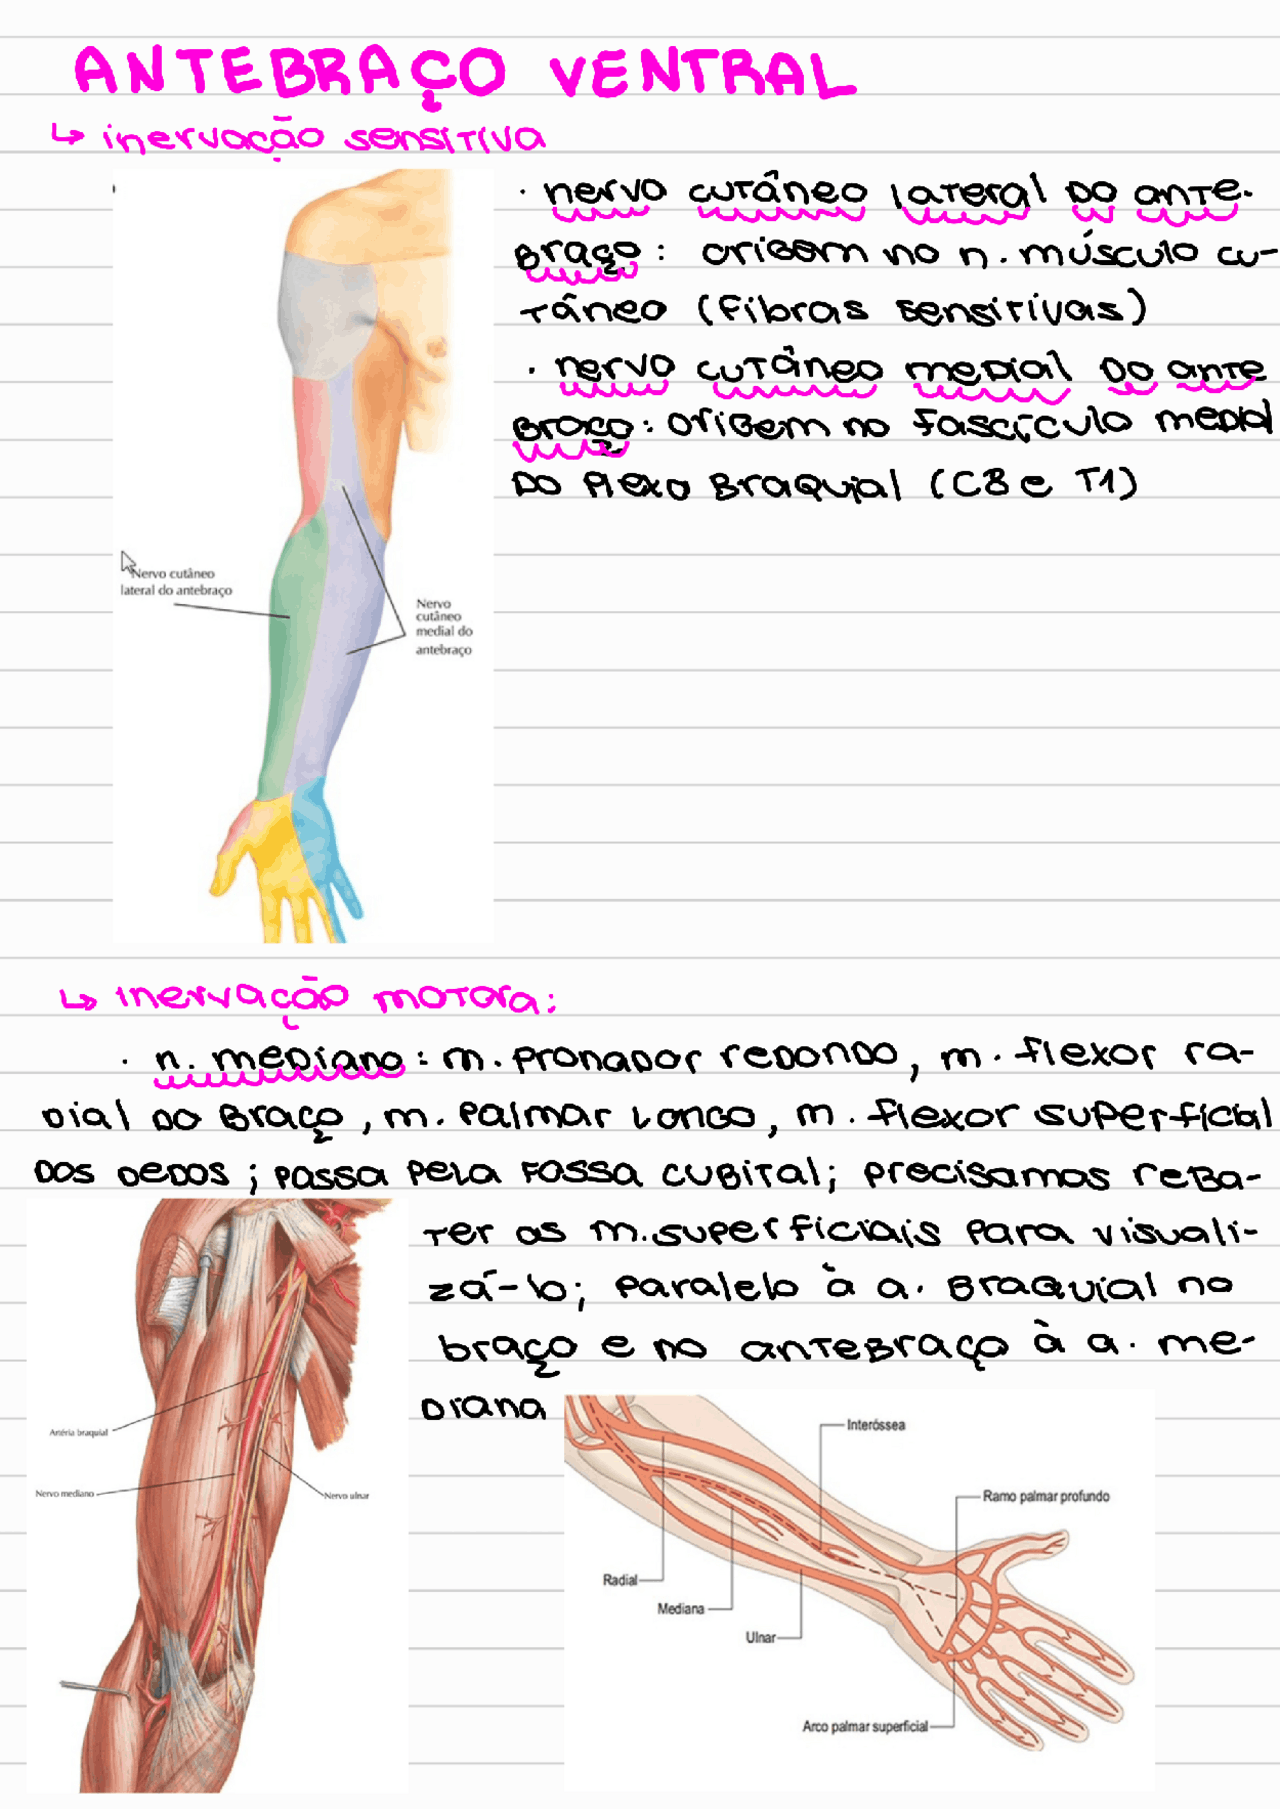 ANTEBRAÇO VENTRAL
↳ inervação sensitiva
· nervo cutâneo lateral do ante-
braço: origem no n. músculo cu-
tâneo (fibras sensitivas)
· nervo cutâneo medial do ante
braço: origem no fascículo medial
do plexo braquial (C8 e T1)
Nervo cutâneo
lateral do antebraço
Nervo
cutâneo
medial do
antebraço
↳ inervação motora:
· n. mediano: m. pronador redondo, m. flexor ra-
dial do braço, m. palmar longo, m. flexor superficial
dos dedos; passa pela fossa cubital; precisamos reba-
ter os m. superficiais para visuali-
zá-lo; paralelo à a. braquial no
braço e no antebraço à a. me-
diana
Artéria braquial
Nervo mediano
Nervo ulnar
Interóssea
Ramo palmar profundo
Radial
Mediana
Ulnar
Arco palmar superficial